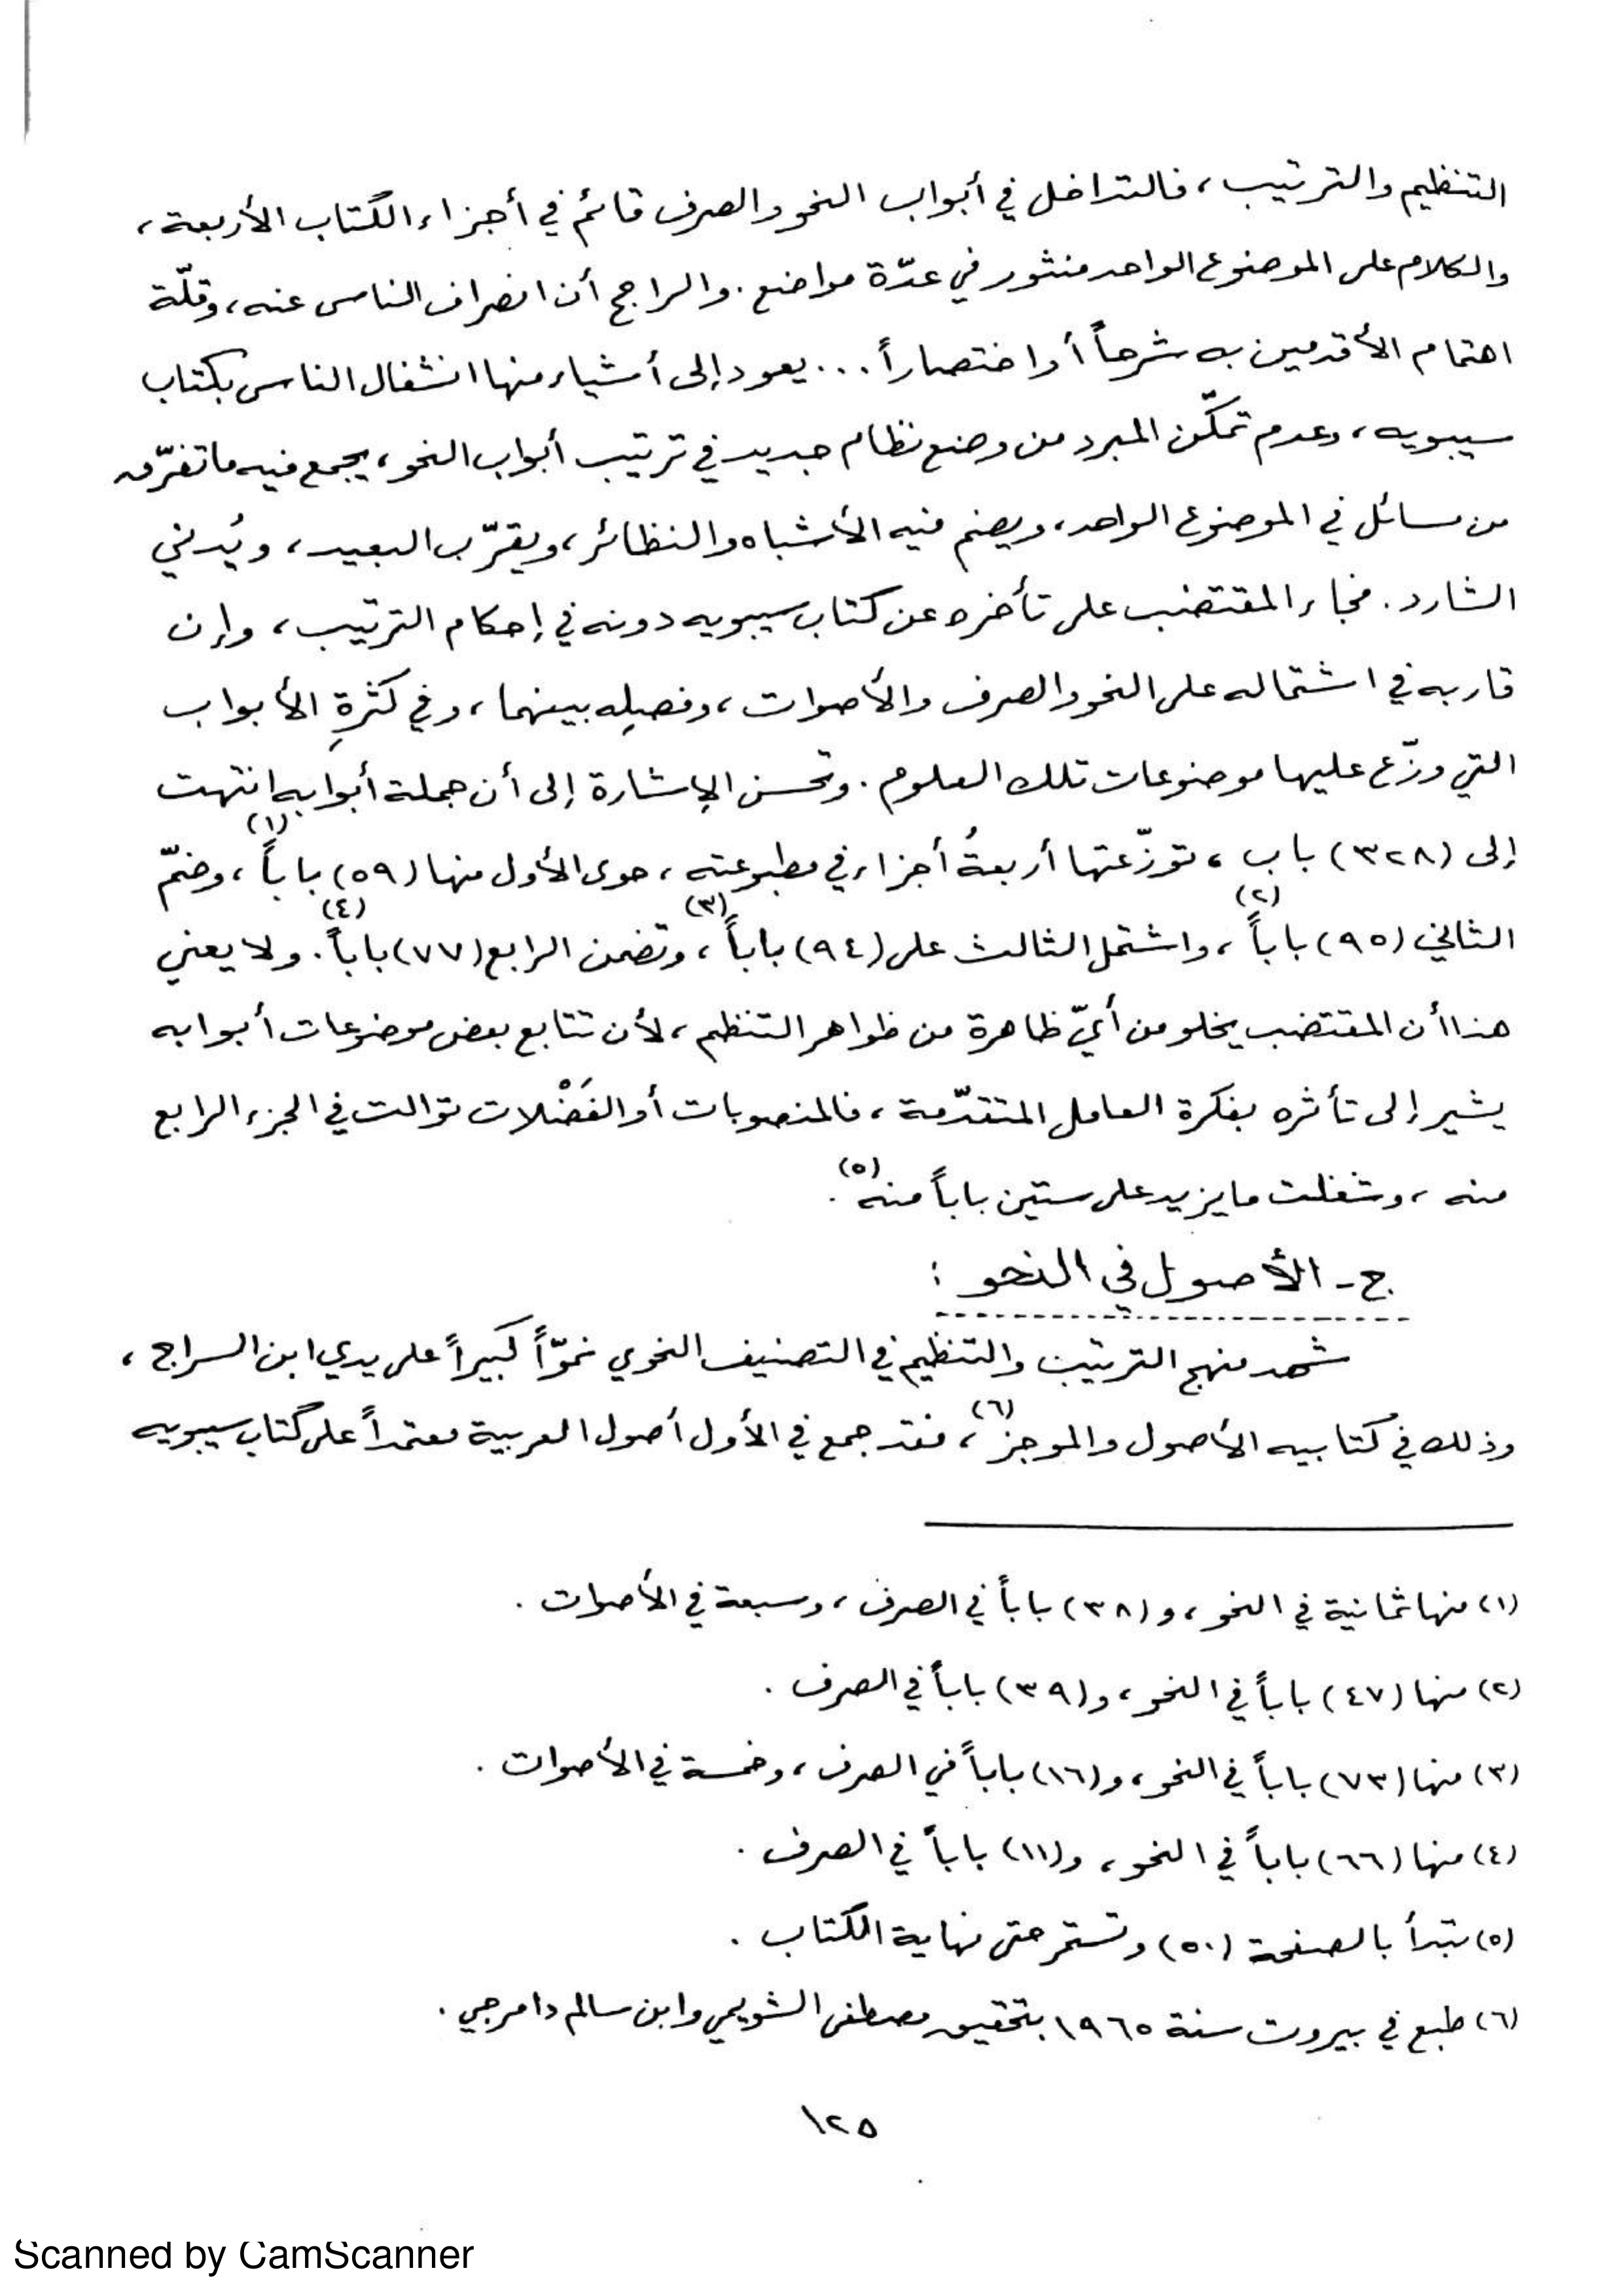 التنظيم والترتيب، فالتداخل في أبواب النحو والصرف قائم في أجزاء الكتاب الأربعة،
والكلام على الموضوع الواحد منثور في عدّة مواضع. والراجح أن انصراف الناس عنه، وقلّة
اهتمام الأقدمين به شرحاً أو اختصاراً... يعود إلى أشياء منها انشغال الناس بكتاب
سيبويه، وعدم تمكّن المبرد من وضع نظام جديد في ترتيب أبواب النحو، يجمع فيه ما تفرّق
من مسائل في الموضوع الواحد، ويضم فيه الأشباه والنظائر، ويقرّب البعيد، ويُدني
الشارد. فجاء المقتضب على تأخره عن كتاب سيبويه دونه في إحكام الترتيب، وإن
قاربه في اشتماله على النحو والصرف والأصوات، وفصلِه بينهما، وفي كثرةِ الأبواب
التي وزّع عليها موضوعات تلك العلوم. وتحسن الإشارة إلى أن جملة أبوابه انتهت
إلى (٣٢٨) باب، توزّعتها أربعةُ أجزاء في مطبوعته، حوى الأول منها (٥٩) باباً(١)، وضمّ
الثاني (٩٥) باباً(٢)، واشتمل الثالث على (٩٤) باباً(٣)، وتضمن الرابع (٧٧) باباً(٤). ولا يعني
هذا أن المقتضب يخلو من أيّ ظاهرة من ظواهر التنظم، لأن تتابع بعض موضوعات أبوابه
يشير إلى تأثره بفكرة العامل المتقدّمة، فالمنصوبات أو الفَضْلات توالت في الجزء الرابع
منه، وشغلت ما يزيد على ستين باباً منه(٥).
ج- الأصول في النحو:
شهد منهج الترتيب والتنظيم في التصنيف النحوي نموّاً كبيراً على يدي ابن السراج،
وذلك في كتابيه الأصول والموجز(٦)، فقد جمع في الأول أصول العربية معتمداً على كتاب سيبويه
(١) منها ثمانية في النحو، و(٣٨) باباً في الصرف، وسبعة في الأصوات.
(٢) منها (٤٧) باباً في النحو، و(٣٩) باباً في الصرف.
(٣) منها (٧٣) باباً في النحو، و(١٦) باباً في الصرف، وخمسة في الأصوات.
(٤) منها (٦٦) باباً في النحو، و(١١) باباً في الصرف.
(٥) تبدأ بالصفحة (٥٠) وتستمر حتى نهاية الكتاب.
(٦) طبع في بيروت سنة ١٩٦٥ بتحقيق مصطفى الشويمي وابن سالم دامرجي.
١٢٥
Scanned by CamScanner